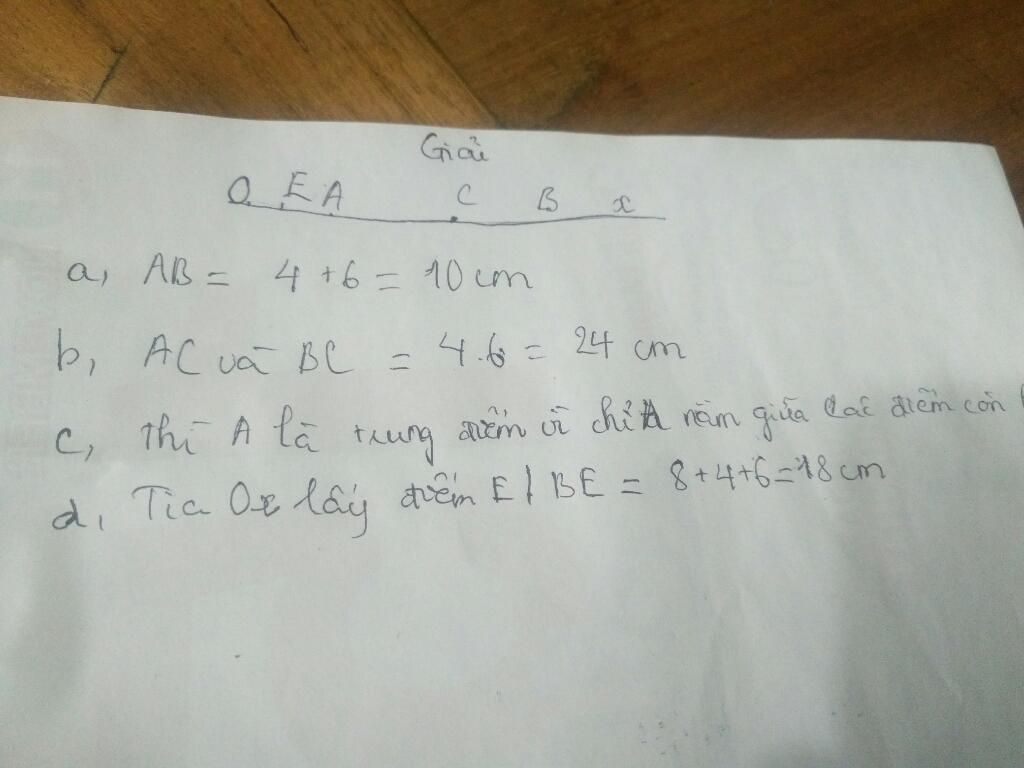 Giải
O E A C B x
a, AB = 4 + 6 = 10 cm
b, AC và BC = 4.6 = 24 cm
c, thì A là trung điểm vì chỉ A nằm giữa các điểm còn
d, Tia Ox lấy điểm E | BE = 8+4+6=18cm